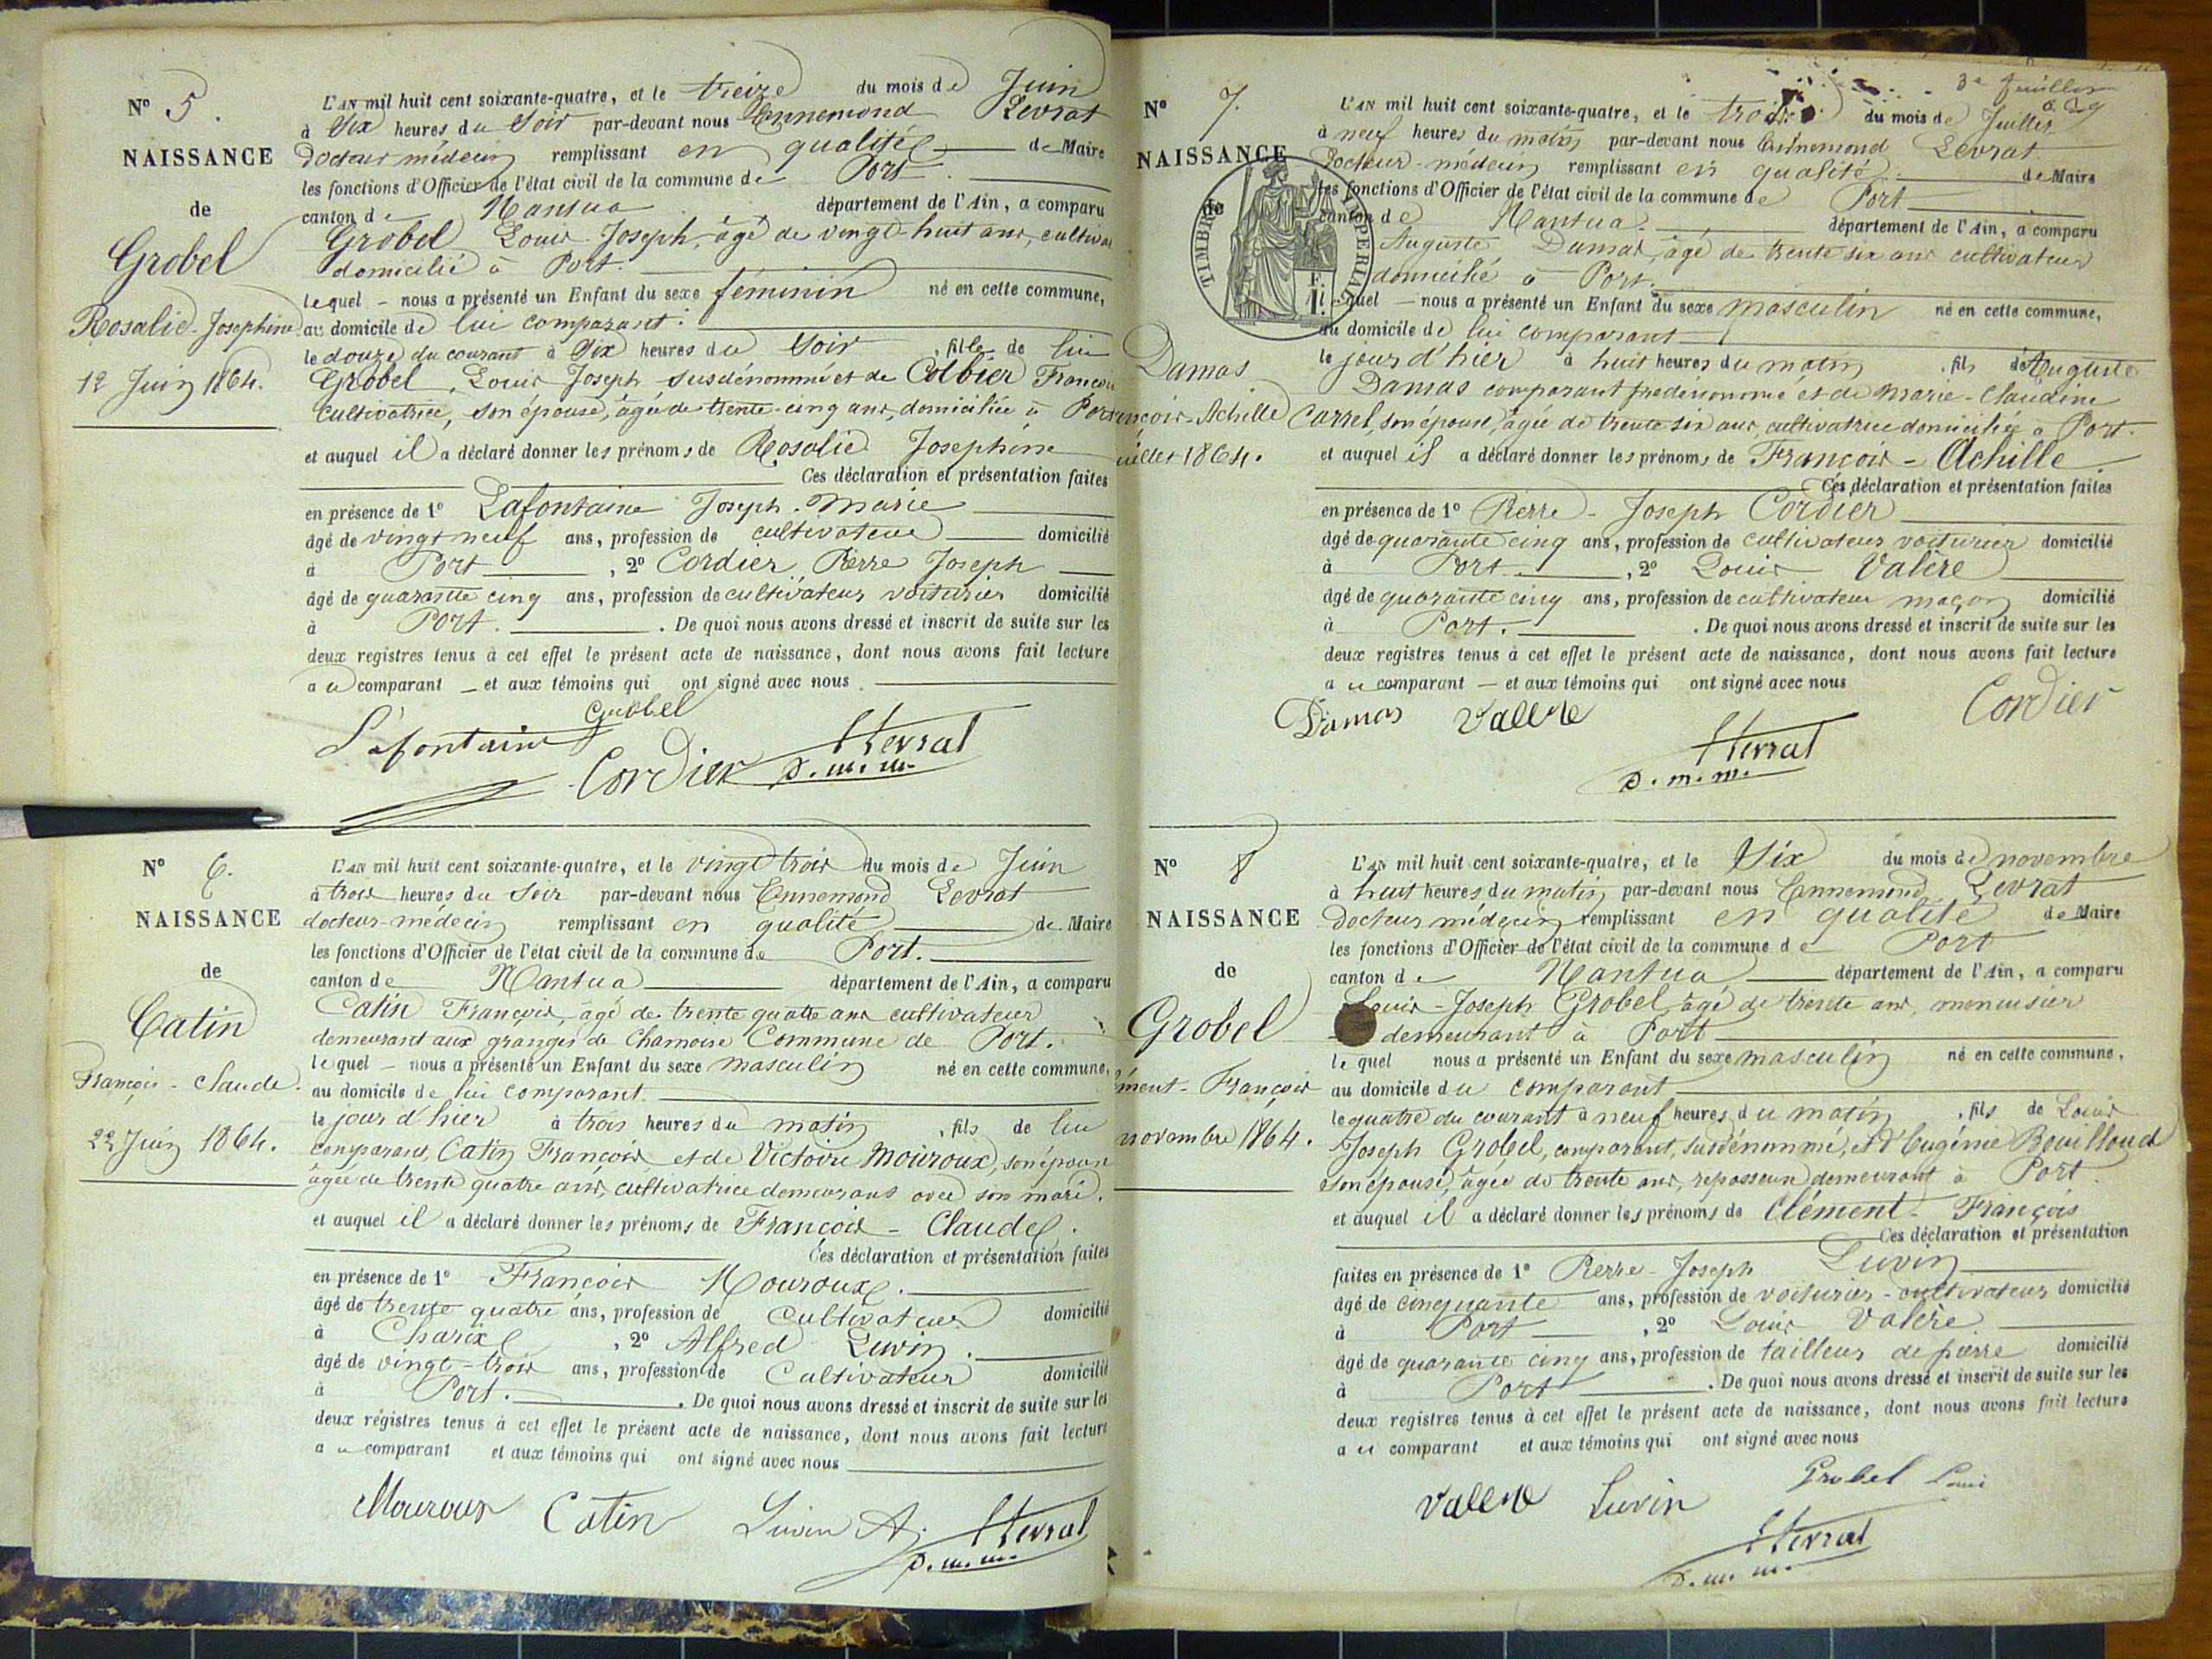 N° 5.
NAISSANCE
de
Grobel
Rosalie-Josephine
12 Juin 1864.
L'AN mil huit cent soixante-quatre, et le treize du mois de Juin
à Six heures du Soir par-devant nous Ennemond Levrat
Docteur médecin remplissant en qualité de Maire
les fonctions d'Officier de l'état civil de la commune de Port.
canton de Nantua département de l'Ain, a comparu
Grobel Louis-Joseph, âgé de vingt-huit ans, cultiva
domicilié à Port.
lequel - nous a présenté un Enfant du sexe féminin né en cette commune,
au domicile de lui comparant.
le douze du courant à Six heures du Soir, fille de lui
Grobel, Louis Joseph susdénommé et de Colbier
cultivatrice, son épouse, âgée de trente-cinq ans, domiciliée à Port
et auquel il a déclaré donner les prénoms de Rosalie Josephine
Ces déclaration et présentation faites
en présence de 1° Lafontaine Joseph-Marie
âgé de vingt neuf ans, profession de cultivateur domicilié
à Port, 2° Cordier Pierre Joseph
âgé de quarante cinq ans, profession de cultivateur voiturier domicilié
à Port. De quoi nous avons dressé et inscrit de suite sur les
deux registres tenus à cet effet le présent acte de naissance, dont nous avons fait lecture
au comparant - et aux témoins qui ont signé avec nous.
Grobel
Lafontaine Cordier Levrat
D. m. m.
N° 6.
NAISSANCE
de
Catin
François-Claude.
22 Juin 1864.
L'AN mil huit cent soixante-quatre, et le vingt trois du mois de Juin
à trois heures du Soir par-devant nous Ennemond Levrat
docteur-médecin remplissant en qualité de Maire
les fonctions d'Officier de l'état civil de la commune de Port.
canton de Nantua département de l'Ain, a comparu
Catin François, âgé de trente quatre ans cultivateur
demeurant aux granges de Chamoise Commune de Port.
lequel - nous a présenté un Enfant du sexe masculin né en cette commune,
au domicile de lui comparant
le jour d'hier à trois heures du matin, fils de lui
comparant, Catin François et de Victoire Mouroux, son épouse
âgée de trente quatre ans, cultivatrice demeurant avec son mari.
et auquel il a déclaré donner les prénoms de François-Claude.
Ces déclaration et présentation faites
en présence de 1° François Mouroux.
âgé de trente quatre ans, profession de cultivateur domicilié
à Charix, 2° Alfred Luvin.
âgé de vingt-trois ans, profession de Cultivateur domicilié
à Port. De quoi nous avons dressé et inscrit de suite sur les
deux régistres tenus à cet effet le présent acte de naissance, dont nous avons fait lecture
au comparant et aux témoins qui ont signé avec nous
Mouroux Catin Luvin A. Levrat
D. m. m.
3e feuillet
N° 7.
NAISSANCE
de
TIMBRE IMPERIAL
1 F.
Damas
ançois-Achille
uillet 1864.
L'AN mil huit cent soixante-quatre, et le trois du mois de Juillet
à neuf heures du matin par-devant nous Ennemond Levrat
Docteur-médecin remplissant en qualité de Maire
les fonctions d'Officier de l'état civil de la commune de Port
canton de Nantua. département de l'Ain, a comparu
Auguste Damas, âgé de trente six ans cultivateur
domicilié à Port.
lequel - nous a présenté un Enfant du sexe masculin né en cette commune,
au domicile de lui comparant
le jour d'hier à huit heures du matin, fils de Auguste
Damas comparant predénommé et de Marie-Claudine
Carrel, son épouse, âgée de trente six ans, cultivatrice domiciliée à Port.
et auquel il a déclaré donner les prénoms de François-Achille.
Ces déclaration et présentation faites
en présence de 1° Pierre-Joseph Cordier
âgé de quarante cinq ans, profession de cultivateur voiturier domicilié
à Port, 2° Louis Valère
âgé de quarante cinq ans, profession de cultivateur maçon domicilié
à Port. De quoi nous avons dressé et inscrit de suite sur les
deux registres tenus à cet effet le présent acte de naissance, dont nous avons fait lecture
au comparant - et aux témoins qui ont signé avec nous
Damas Vallere Cordier
Levrat
D. m. m.
N° 8
NAISSANCE
de
Grobel
ment-François
novembre 1864.
L'AN mil huit cent soixante-quatre, et le Six du mois de novembre
à huit heures du matin par-devant nous Ennemond Levrat
Docteur médecin remplissant en qualité de Maire
les fonctions d'Officier de l'état civil de la commune de Port
canton de Nantua département de l'Ain, a comparu
Louis-Joseph Grobel, âgé de trente ans, menuisier
demeurant à Port
lequel nous a présenté un Enfant du sexe masculin né en cette commune,
au domicile du comparant
le quatre du courant à neuf heures du matin, fils de Louis
Joseph Grobel, comparant, susdénommé, et d'Eugénie Bouilloud
son épouse, âgée de trente ans, demeurant à Port.
et auquel il a déclaré donner les prénoms de Clément-François
Ces déclaration et présentation
faites en présence de 1° Pierre-Joseph Luvin
âgé de cinquante ans, profession de voiturier-cultivateur domicilié
à Port, 2° Louis Valère
âgé de quarante cinq ans, profession de tailleur de pierre domicilié
à Port. De quoi nous avons dressé et inscrit de suite sur les
deux registres tenus à cet effet le présent acte de naissance, dont nous avons fait lecture
au comparant et aux témoins qui ont signé avec nous
Vallere Luvin Grobel Louis
Levrat
D. m. m.